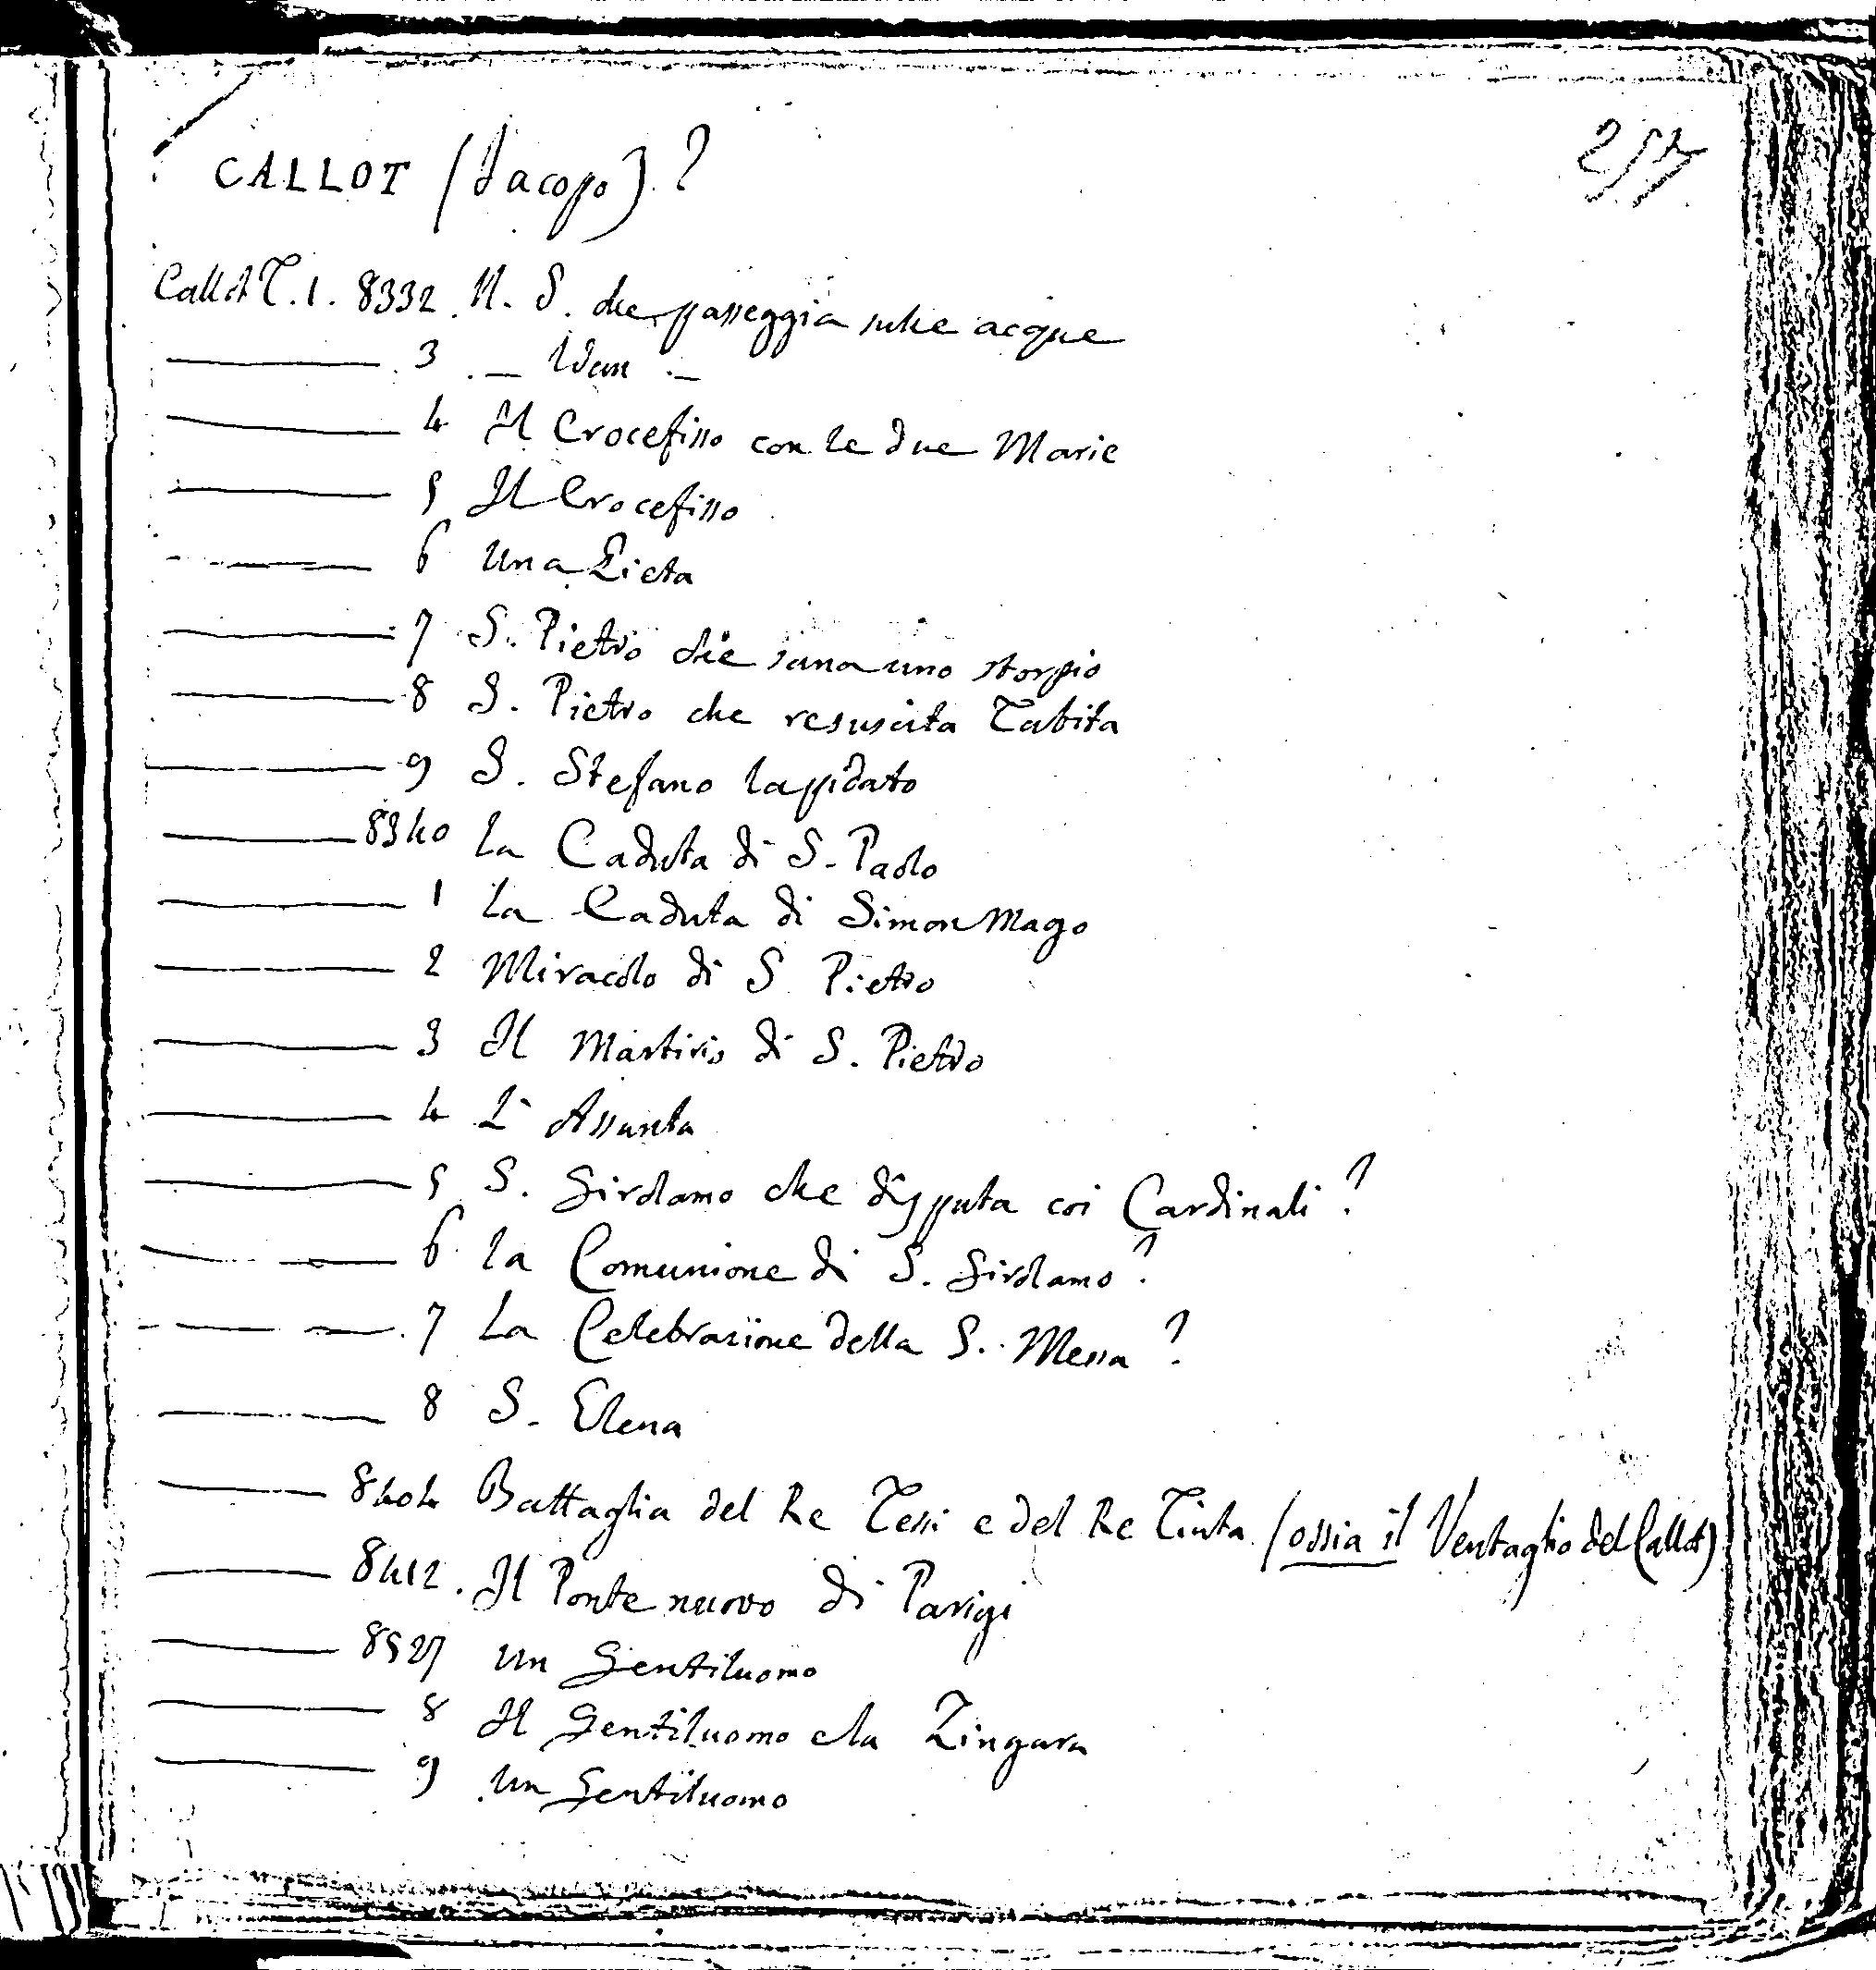 257
CALLOT (Jacopo) ?
Callot T. 1. 8332. N. S. che passeggia sulle acque
——— 3 . — Idem . —
——— 4 Il Crocefisso con le due Marie
——— 5 Il Crocefisso
——— 6 Una Pieta
——— 7 S. Pietro che sana uno storpio
——— 8 S. Pietro che resuscita Tabita
——— 9 S. Stefano lapidato
——— 8340 La Caduta di S. Paolo
——— 1 La Caduta di Simon Mago
——— 2 Miracolo di S. Pietro
——— 3 Il Martirio di S. Pietro
——— 4 L' Assunta
——— 5 S. Girolamo che disputa coi Cardinali ?
——— 6 La Comunione di S. Girolamo ?
——— 7 La Celebrazione della S. Messa ?
——— 8 S. Elena
——— 8404 Battaglia del Re Tessi e del Re Tinta (ossia il Ventaglio del Callot)
——— 8412. Il Ponte nuovo di Parigi
——— 8527 Un Gentiluomo
——— 8 Il Gentiluomo e la Zingara
——— 9 Un Gentiluomo